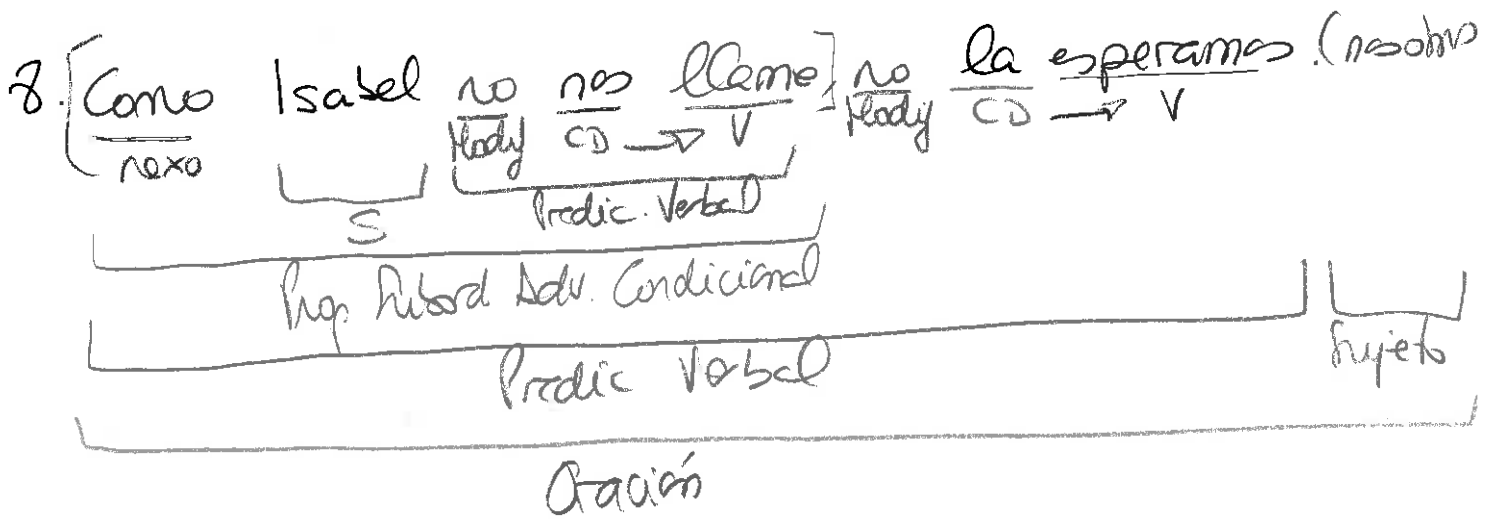 8. [Como Isabel no nos llame] no la esperamos. (nosotros
nexo Mody CD V Mody CD V
S Predic. Verbal
Prop Subord Adv. Condicional
Predic Verbal Sujeto
Oración